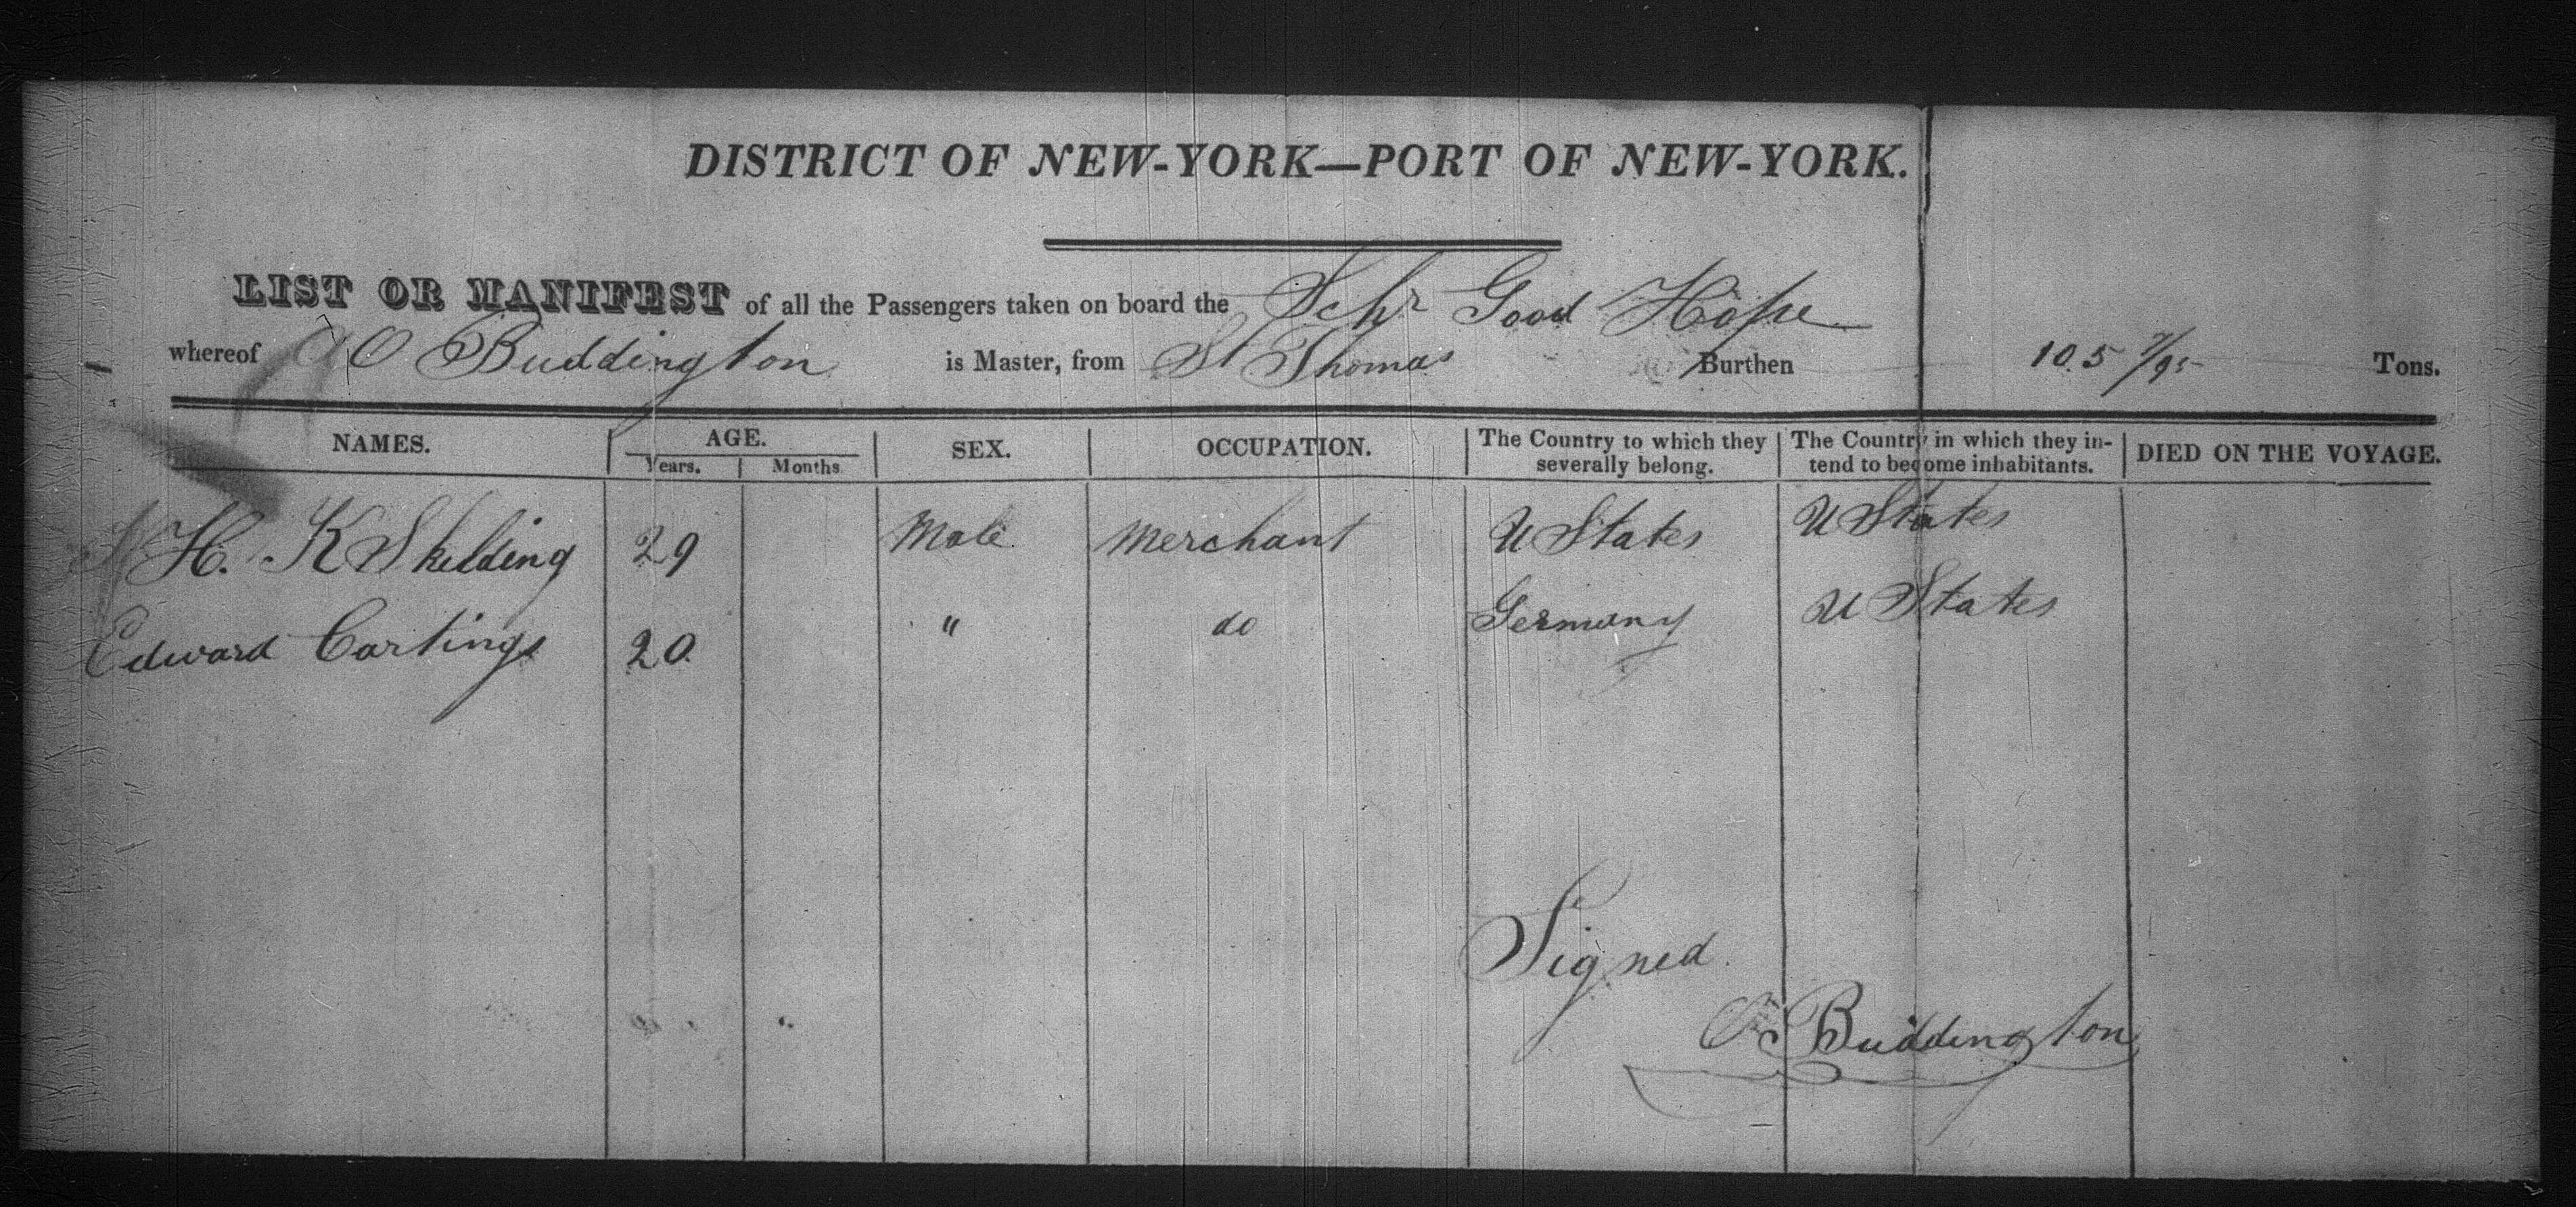 DISTRICT OF NEW-YORK—PORT OF NEW-YORK.
LIST OR MANIFEST of all the Passengers taken on board the Schr Good Hope
whereof O Buddington is Master, from St Thomas Burthen 105 7/95 Tons.
NAMES. AGE. SEX. OCCUPATION. The Country to which they severally belong. The Country in which they intend to become inhabitants. DIED ON THE VOYAGE.
Years. Months
H. K Skelding 29 Male Merchant U States U States
Edward Cartings 20 " do Germany U States
Signed
O Buddington